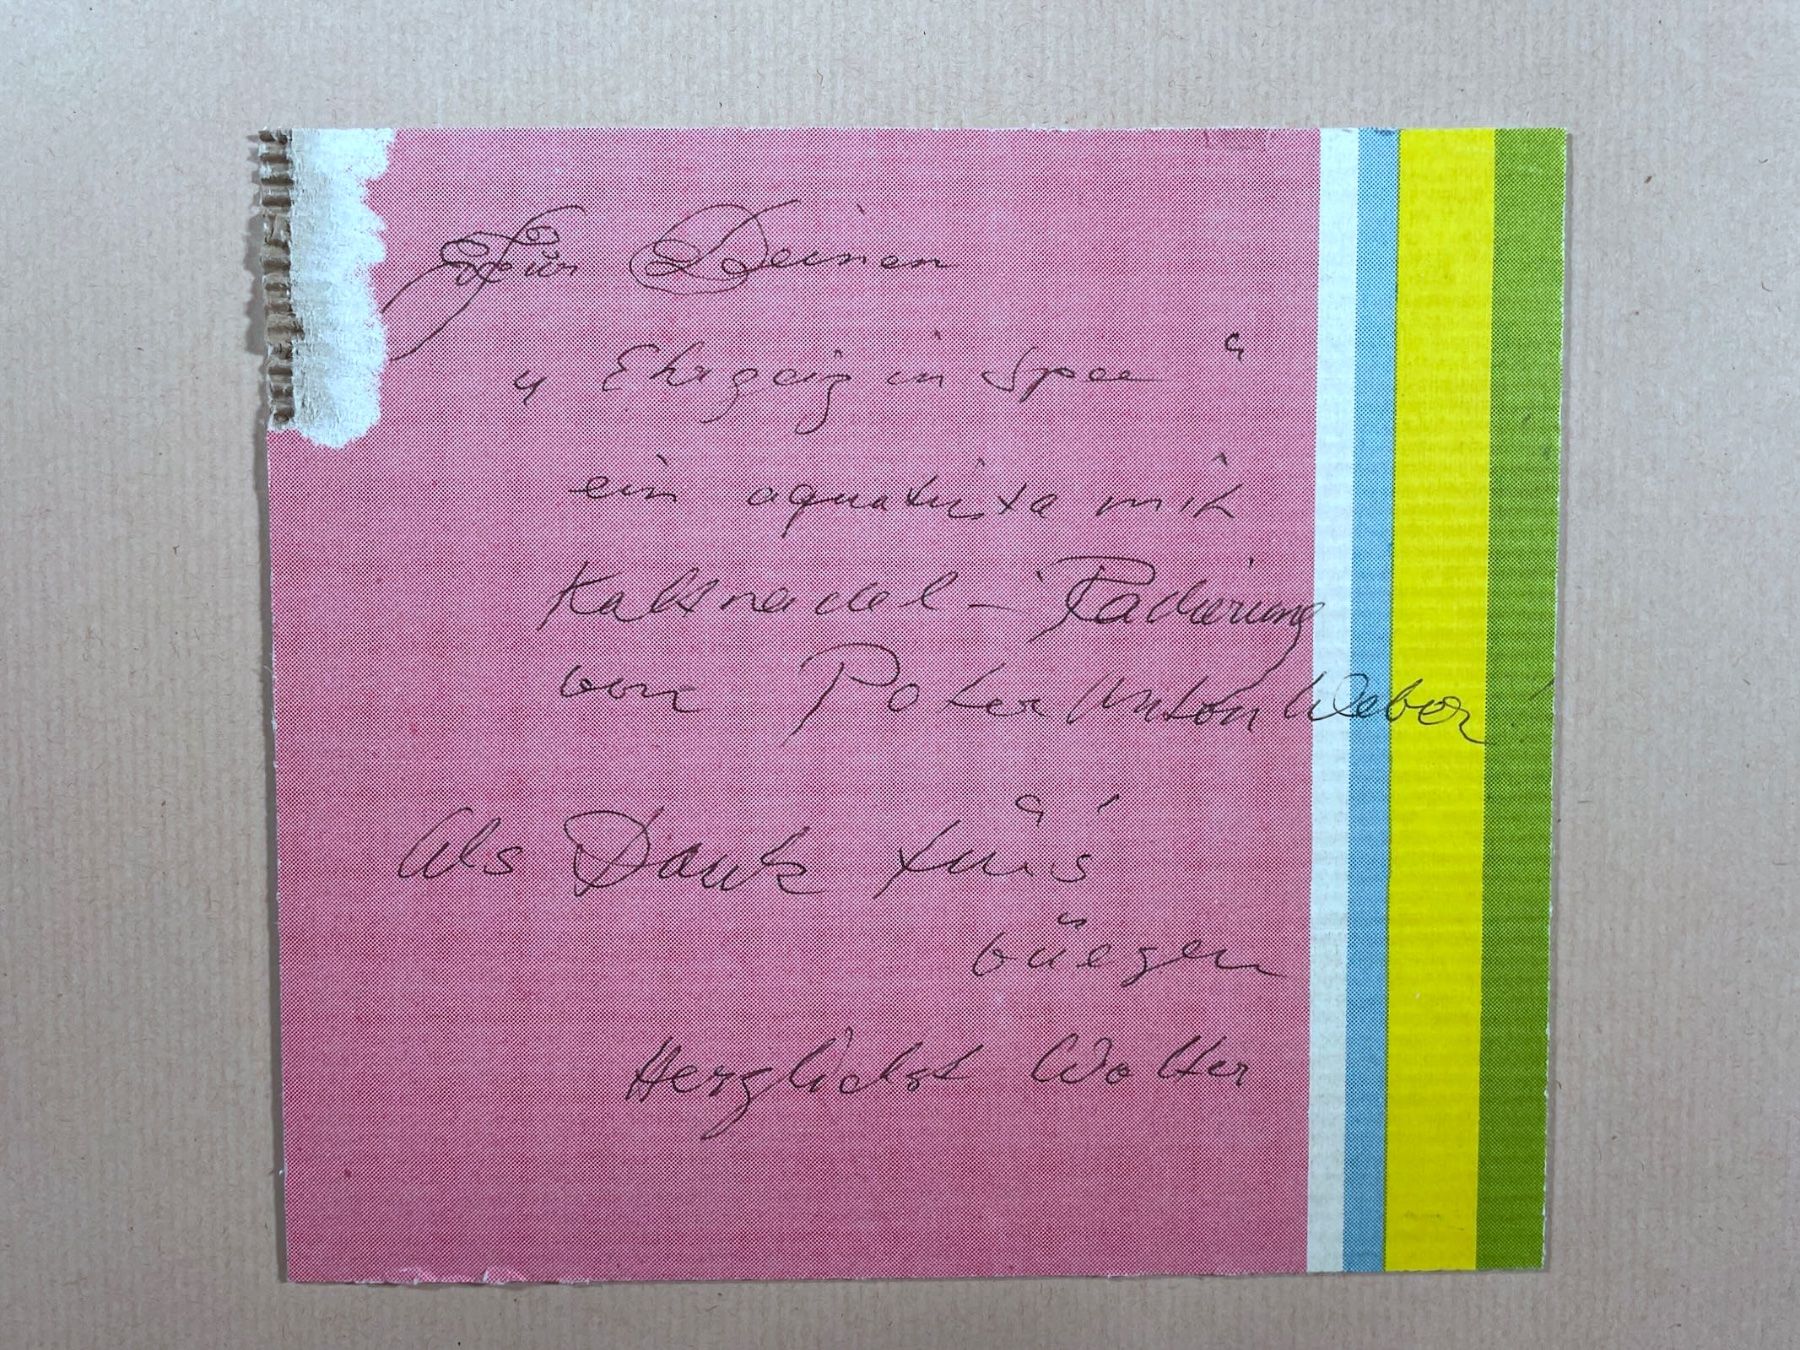 Für Deinen
„Ehrgeiz in Spee“
ein aquatinta mit
Kaltnadel - Radierung
von Peter Anton Weber!
Als Dank für's
büegen
Herzlichst Wolter